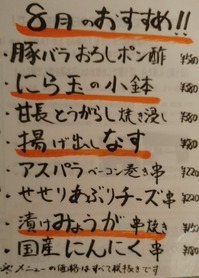 8月のおすすめ!!
・豚バラおろしポン酢 ¥580
・にら玉の小鉢 ¥380
・甘長とうがらし焼き浸し ¥380
・揚げ出しなす ¥380
・アスパラベーコン巻き串 ¥220
・せせりあぶりチーズ串 ¥220
・漬けみょうが串焼き
・国産にんにく串 ¥180
※メニューの価格はすべて税抜きです